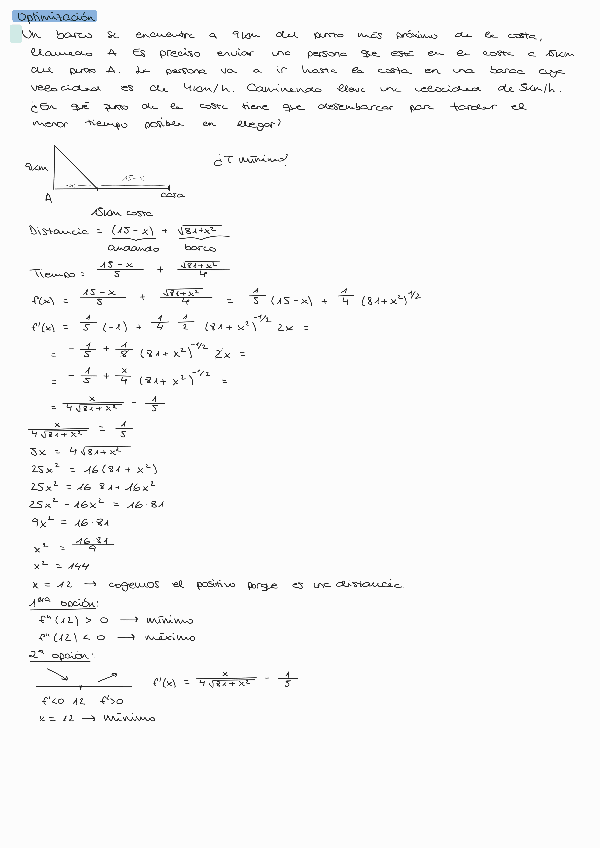 Optimización
Un barco se encuentra a 9km del punto más próximo de la costa,
llamado A. Es preciso enviar una persona que está en la costa a 15km
del punto A. La persona va a ir hasta la costa en una barca cuya
velocidad es de 4km/h. Caminando lleva una velocidad de 5km/h.
¿En qué punto de la costa tiene que desembarcar para tardar el
menor tiempo posible en llegar?
¿T mínimo?
9km
x 15-x
A costa
15km costa
Distancia = (15-x) + √81+x²
andando barco
Tiempo = 15-x/5 + √81+x²/4
f(x) = 15-x/5 + √81+x²/4 = 1/5 (15-x) + 1/4 (81+x²)^1/2
f'(x) = 1/5 (-1) + 1/4 1/2 (81+x²)^-1/2 2x =
= -1/5 + 1/8 (81+x²)^-1/2 2x =
= -1/5 + x/4 (81+x²)^-1/2 =
= x/4√81+x² - 1/5
x/4√81+x² = 1/5
5x = 4√81+x²
25x² = 16(81+x²)
25x² = 16 81+16x²
25x² - 16x² = 16·81
9x² = 16·81
x² = 16 81/9
x² = 144
x = 12 → cogemos el positivo porque es una distancia
1era opción:
f''(12) > 0 → mínimo
f''(12) < 0 → máximo
2ª opción:
f'(x) = x/4√81+x² - 1/5
f'<0 12 f'>0
x = 12 → mínimo